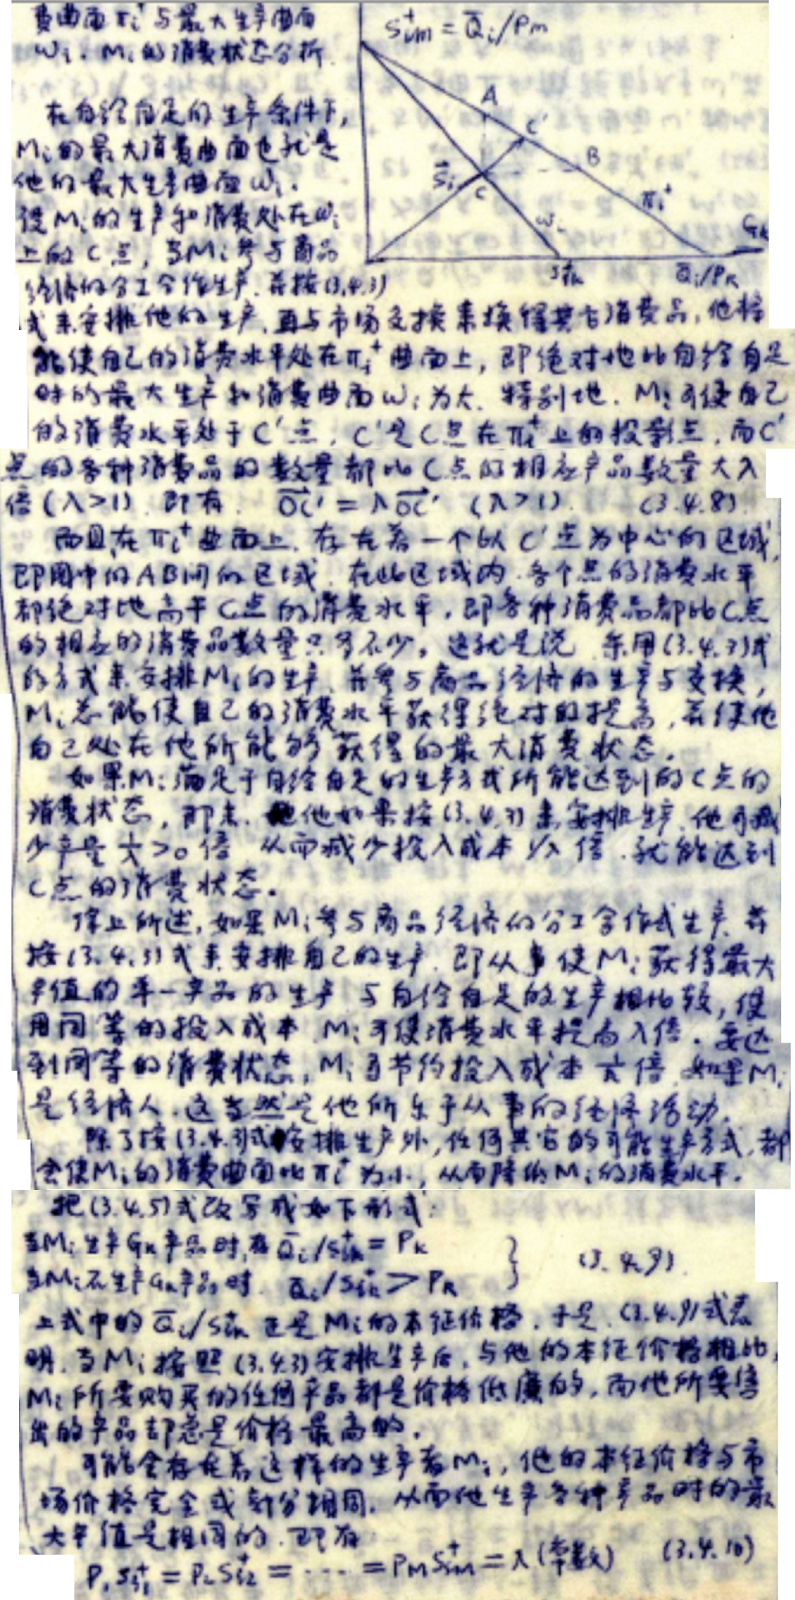 费曲面πi⁺与最大生产曲面
ωi. Mi的消费状态分析.
S⁺im = Q̄i/Pm
A
C'
B
S̄i
C
ωi
πi⁺
Gk
S⁺ik
Q̄i/Pk
在自给自足的生产条件下,
Mi的最大消费曲面也就是
他的最大生产曲面ωi.
设Mi的生产和消费处在ωi
上的C点, 当Mi参与商品
经济的分工合作生产. 并按(3.4.3)
式来安排他的生产, 再与市场交换来换得其它消费品, 他将
能使自己的消费水平处在πi⁺曲面上, 即绝对地比自给自足
时的最大生产和消费曲面ωi为大. 特别地. Mi可使自己
的消费水平处于C'点, C'是C点在πi⁺上的投影点, 而C'
点的各种消费品的数量都比C点的相应产品数量大λ
倍(λ>1). 即有. OC' = λOC (λ>1). (3.4.8).
而且在πi⁺曲面上. 存在着一个以C'点为中心的区域,
即图中的AB间的区域. 在此区域内. 各个点的消费水平
都绝对地高于C点的消费水平, 即各种消费品都比C点
的相应的消费品数量只多不少. 这就是说 采用(3.4.3)式
的方式来安排Mi的生产. 并参与商品经济的生产与交换,
Mi总能使自己的消费水平获得绝对的提高, 并使他
自己处在他所能够获得的最大消费状态.
如果Mi满足于自给自足的生产方式所能达到的C点的
消费状态, 那末. 他如果按(3.4.3)来安排生产. 他可减
少产量 >0倍 从而减少投入成本1/λ倍. 就能达到
C点的消费状态.
综上所述, 如果Mi参与商品经济的分工合作式生产. 并
按(3.4.3)式来安排自己的生产. 即从事使Mi获得最大
产值的单一产品的生产 与自给自足的生产相比较, 使
用同等的投入成本 Mi可使消费水平提高λ倍. 要达
到同等的消费状态, Mi可节约投入成本 倍. 如果Mi
是经济人. 这当然是他所乐于从事的经济活动.
除了按(3.4.3)式安排生产外, 任何其它的可能生产方式, 都
会使Mi的消费曲面比πi⁺为小, 从而降低Mi的消费水平.
把(3.4.5)式改写成如下形式:
当Mi生产Gk产品时, 有 Q̄i/S⁺ik = Pk
当Mi不生产Gk产品时. Q̄i/S⁺ik > Pk } (3.4.9).
上式中的Q̄i/S⁺ik正是Mi的本征价格. 于是. (3.4.9)式表
明. 当Mi按照(3.4.3)安排生产后, 与他的本征价格相比,
Mi所要购买的任何产品都是价格低廉的, 而他所要售
出的产品却总是价格最高的.
可能会存在着这样的生产者Mi, 他的本征价格与市
场价格完全或部分相同. 从而他生产各种产品时的最
大产值是相同的. 即有
P₁S⁺i1 = P₂S⁺i2 = ···· = PMS⁺iM = λ(常数) (3.4.10)